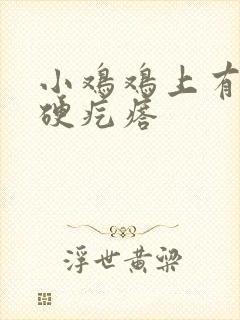 小鸡鸡上有
硬疙瘩
浮世黄梁